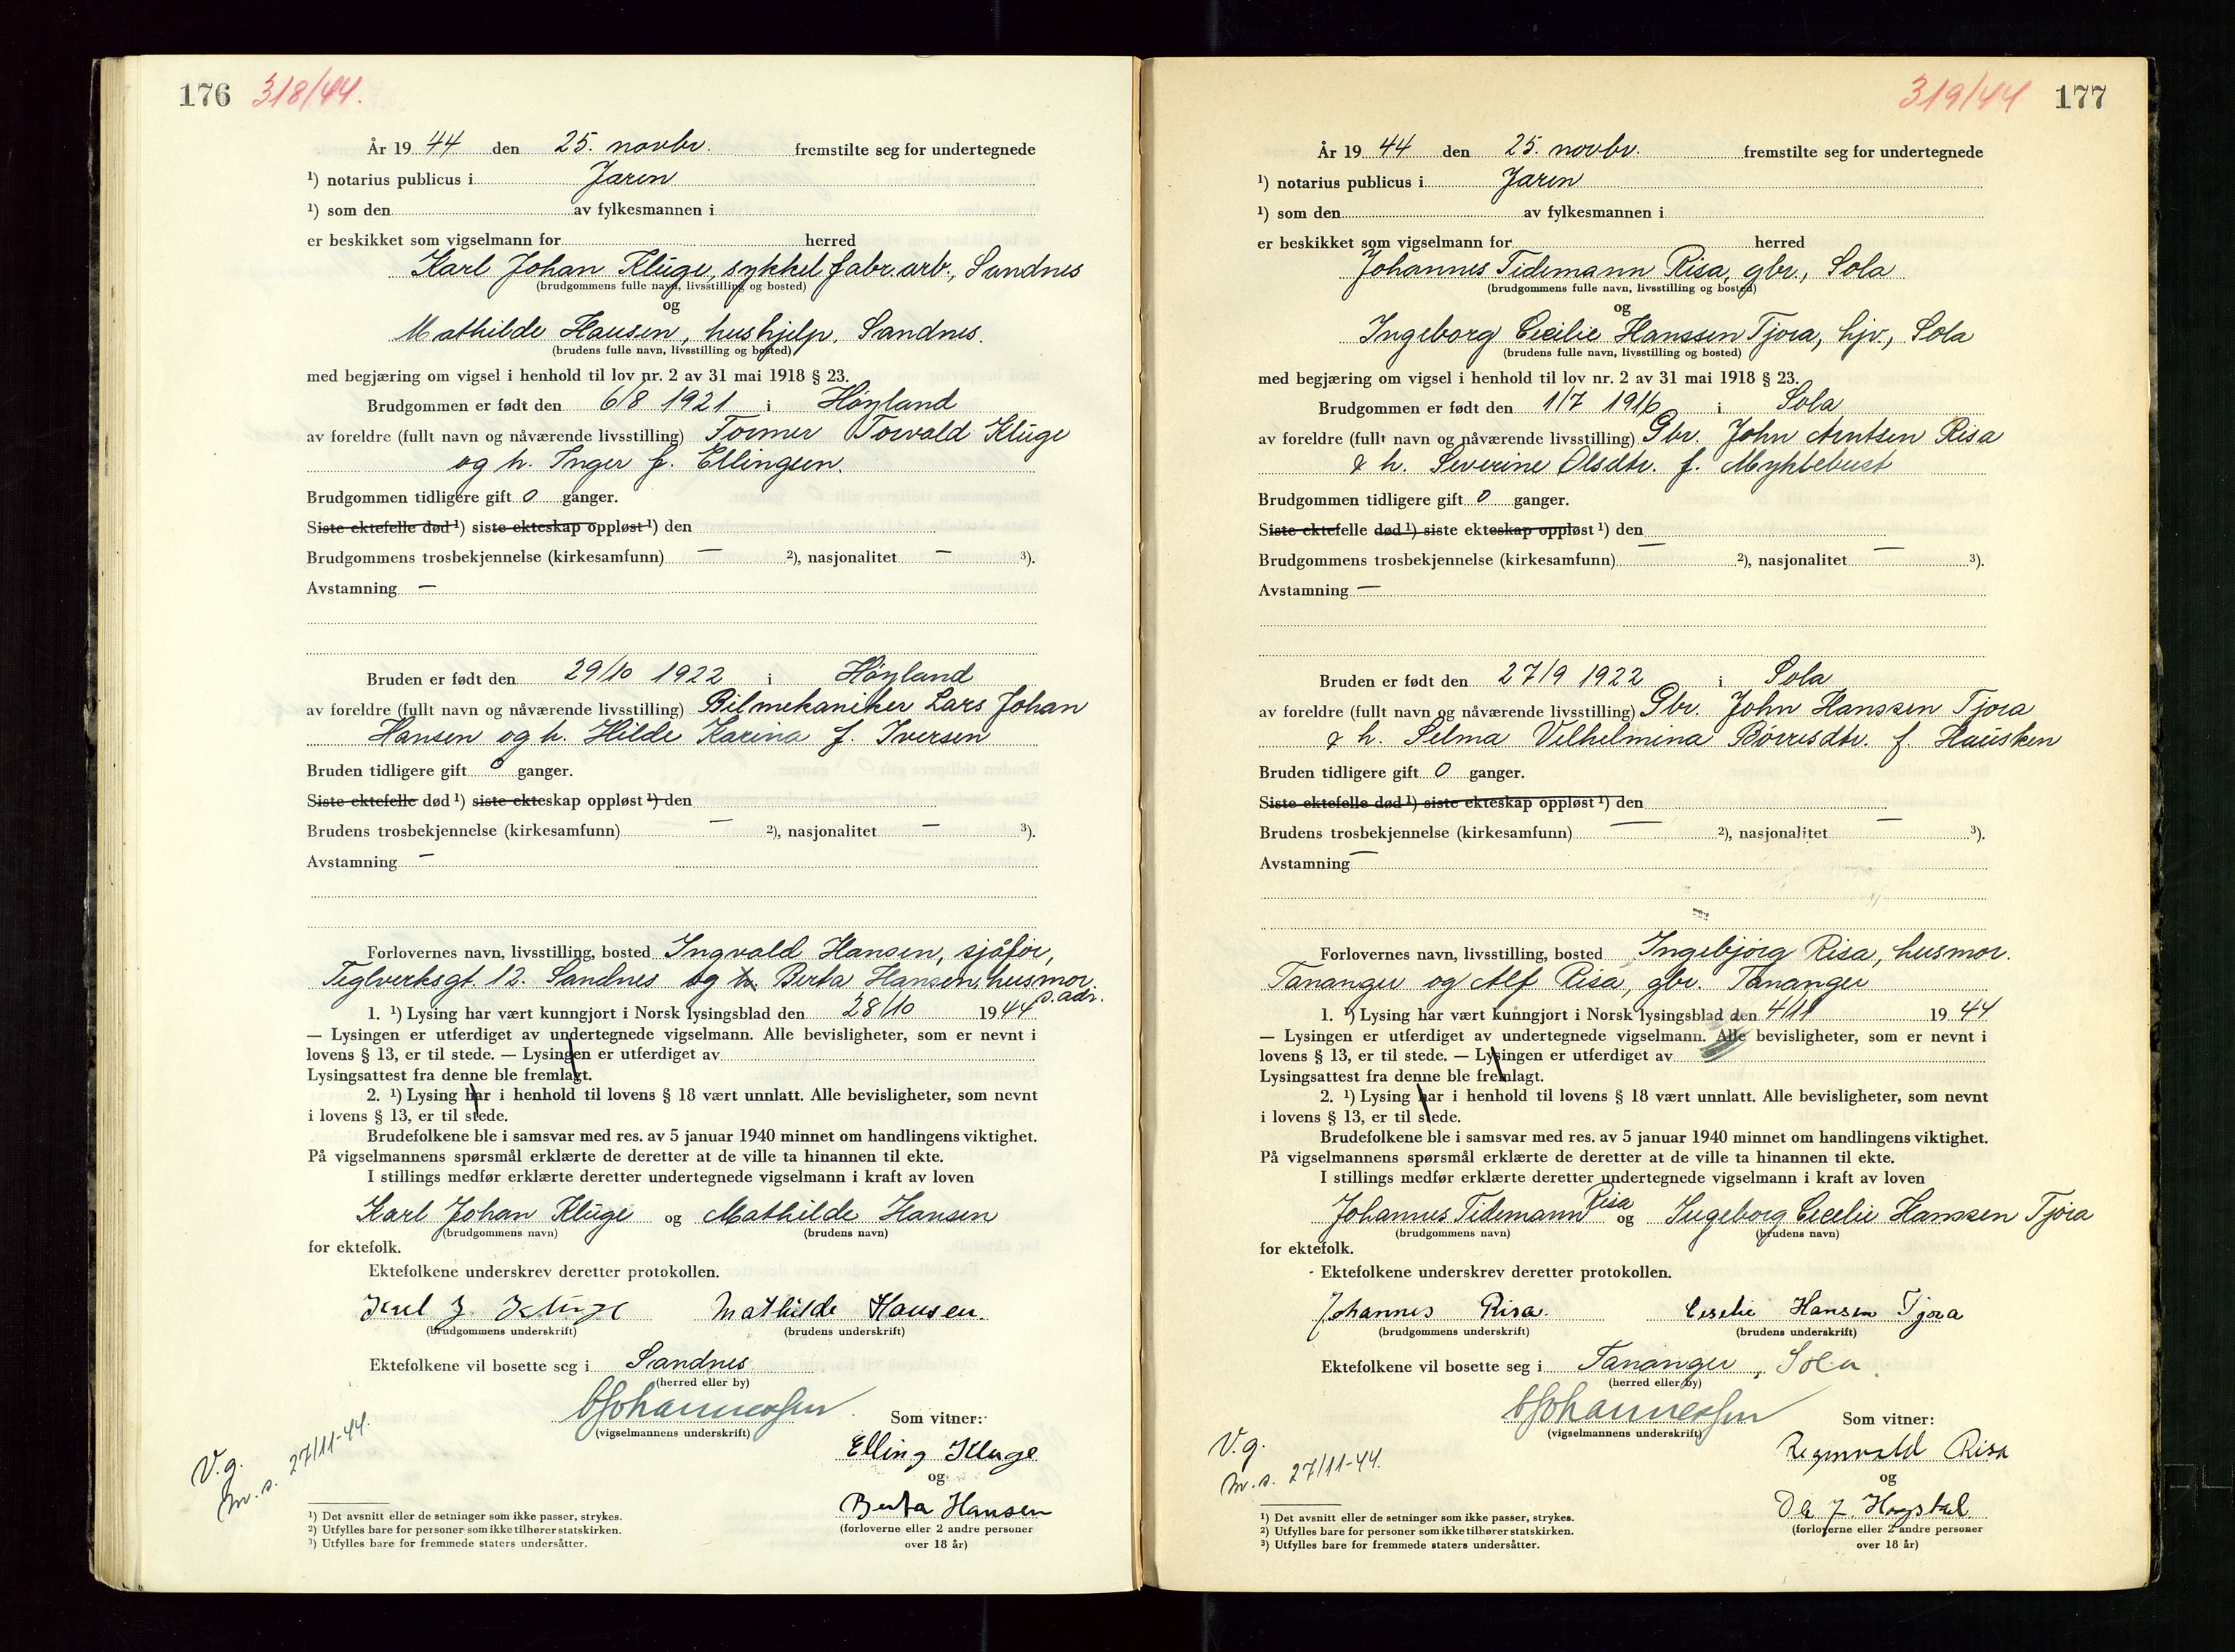 176 318/44.
År 19 44 den 25. novbr. fremstilte seg for undertegnede
¹) notarius publicus i Jæren
¹) som den av fylkesmannen i
er beskikket som vigselmann for herred
Karl Johan Kluge, sykkelfabr.arb., Sandnes
(brudgommens fulle navn, livsstilling og bosted)
og
Mathilde Hansen, hushjelp, Sandnes.
(brudens fulle navn, livsstilling og bosted)
med begjæring om vigsel i henhold til lov nr. 2 av 31 mai 1918 § 23.
Brudgommen er født den 6/8 1921 i Høyland
av foreldre (fullt navn og nåværende livsstilling) Former Torvald Kluge
og h. Inger f. Ellingsen.
Brudgommen tidligere gift 0 ganger.
Siste ektefelle død ¹) siste ekteskap oppløst ¹) den
Brudgommens trosbekjennelse (kirkesamfunn) — ²), nasjonalitet — ³).
Avstamning —
Bruden er født den 29/10 1922 i Høyland
av foreldre (fullt navn og nåværende livsstilling) Bilmekaniker Lars Johan
Hansen og h. Hilde Karina f. Iversen
Bruden tidligere gift 0 ganger.
Siste ektefelle død ¹) siste ekteskap oppløst ¹) den
Brudens trosbekjennelse (kirkesamfunn) — ²), nasjonalitet — ³).
Avstamning —
Forlovernes navn, livsstilling, bosted Ingvald Hansen, sjåfør,
Teglverksgt. 12. Sandnes og h. Berta Hansen, husmor
s.adr.
1. ¹) Lysing har vært kunngjort i Norsk lysingsblad den 28/10 19 44
— Lysingen er utferdiget av undertegnede vigselmann. Alle bevisligheter, som er nevnt i
lovens § 13, er til stede. — Lysingen er utferdiget av
Lysingsattest fra denne ble fremlagt.
2. ¹) Lysing har i henhold til lovens § 18 vært unnlatt. Alle bevisligheter, som nevnt
i lovens § 13, er til stede.
Brudefolkene ble i samsvar med res. av 5 januar 1940 minnet om handlingens viktighet.
På vigselmannens spørsmål erklærte de deretter at de ville ta hinannen til ekte.
I stillings medfør erklærte deretter undertegnede vigselmann i kraft av loven
Karl Johan Kluge og Mathilde Hansen
(brudgommens navn) (brudens navn)
for ektefolk.
Ektefolkene underskrev deretter protokollen.
Karl J. Kluge Mathilde Hansen.
(brudgommens underskrift) (brudens underskrift)
Ektefolkene vil bosette seg i Sandnes
(herred eller by)
(vigselmannens underskrift)
Som vitner:
Elling Kluge
og
Berta Hansen
(forloverne eller 2 andre personer
over 18 år)
V.g.
m.s. 27/11-44.
¹) Det avsnitt eller de setninger som ikke passer, strykes.
²) Utfylles bare for personer som ikke tilhører statskirken.
³) Utfylles bare for fremmede staters undersåtter.
319/44 177
År 19 44 den 25. novbr. fremstilte seg for undertegnede
¹) notarius publicus i Jæren
¹) som den av fylkesmannen i
er beskikket som vigselmann for herred
Johannes Tidemann Risa, gbr., Sola
(brudgommens fulle navn, livsstilling og bosted)
og
Ingeborg Cecilie Hanssen Tjora, hjv., Sola
(brudens fulle navn, livsstilling og bosted)
med begjæring om vigsel i henhold til lov nr. 2 av 31 mai 1918 § 23.
Brudgommen er født den 1/7 1916 i Sola
av foreldre (fullt navn og nåværende livsstilling) Gbr. John Arntsen Risa
& h. Severine Olsdtr. f. Myklebust
Brudgommen tidligere gift 0 ganger.
Siste ektefelle død ¹) siste ekteskap oppløst ¹) den
Brudgommens trosbekjennelse (kirkesamfunn) — ²), nasjonalitet — ³).
Avstamning —
Bruden er født den 27/9 1922 i Sola
av foreldre (fullt navn og nåværende livsstilling) Gbr. John Hanssen Tjora
& h. Selma Vilhelmina Børresdtr. f. Hausken
Bruden tidligere gift 0 ganger.
Siste ektefelle død ¹) siste ekteskap oppløst ¹) den
Brudens trosbekjennelse (kirkesamfunn) — ²), nasjonalitet — ³).
Avstamning —
Forlovernes navn, livsstilling, bosted Ingebjørg Risa, husmor.
Tananger og Alf Risa, gbr. Tananger
1. ¹) Lysing har vært kunngjort i Norsk lysingsblad den 4/11 19 44
— Lysingen er utferdiget av undertegnede vigselmann. Alle bevisligheter, som er nevnt i
lovens § 13, er til stede. — Lysingen er utferdiget av
Lysingsattest fra denne ble fremlagt.
2. ¹) Lysing har i henhold til lovens § 18 vært unnlatt. Alle bevisligheter, som nevnt
i lovens § 13, er til stede.
Brudefolkene ble i samsvar med res. av 5 januar 1940 minnet om handlingens viktighet.
På vigselmannens spørsmål erklærte de deretter at de ville ta hinannen til ekte.
I stillings medfør erklærte deretter undertegnede vigselmann i kraft av loven
Johannes Tidemann Risa og Ingeborg Cecelie Hanssen Tjora
(brudgommens navn) (brudens navn)
for ektefolk.
Ektefolkene underskrev deretter protokollen.
Johannes Risa. Ceselie Hansen Tjora
(brudgommens underskrift) (brudens underskrift)
Ektefolkene vil bosette seg i Tananger, Sola.
(herred eller by)
(vigselmannens underskrift)
Som vitner:
Regnvald Risa
og
(forloverne eller 2 andre personer
over 18 år)
V.g.
m.s. 27/11-44.
¹) Det avsnitt eller de setninger som ikke passer, strykes.
²) Utfylles bare for personer som ikke tilhører statskirken.
³) Utfylles bare for fremmede staters undersåtter.